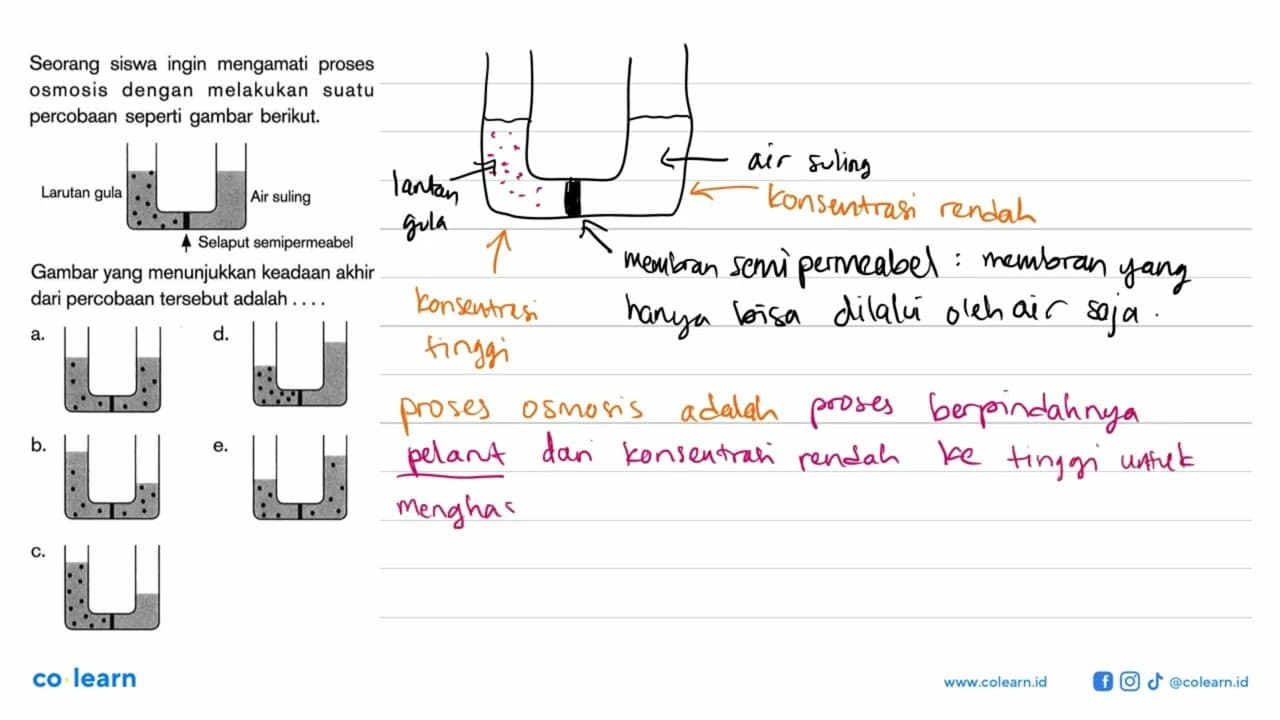 Seorang siswa ingin mengamati proses
osmosis dengan melakukan suatu
percobaan seperti gambar berikut.
Larutan gula
Air suling
Selaput semipermeabel
Gambar yang menunjukkan keadaan akhir
dari percobaan tersebut adalah . . . .
a.
d.
b.
e.
c.
larutan
gula
air suling
konsentrasi rendah
konsentrasi
tinggi
membran semipermeabel : membran yang
hanya bisa dilalui oleh air saja.
proses osmosis adalah proses berpindahnya
pelarut dari konsentrasi rendah ke tinggi untuk
menghas
co·learn
www.colearn.id
@colearn.id